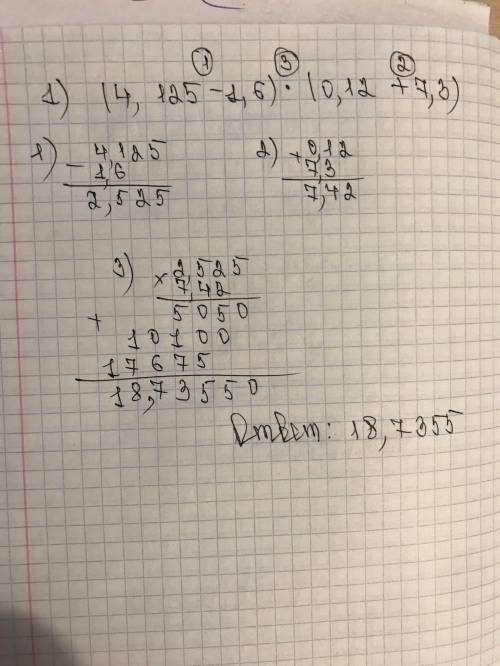 ① ③ ②
1) (4,125 - 1,6) · (0,12 + 7,3)
1) 4,125
- 1,6
2,525
2) + 0,12
7,3
7,42
3) × 2,525
7,42
+ 5050
10100
17675
18,73550
Ответ: 18,7355